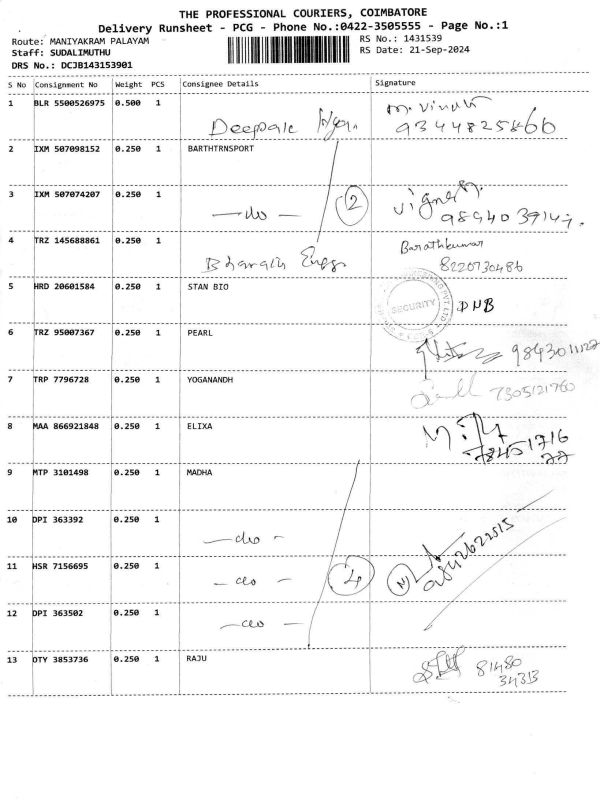 THE PROFESSIONAL COURIERS, COIMBATORE
Delivery Runsheet - PCG - Phone No.:0422-3505555 - Page No.:1
Route: MANIYAKRAM PALAYAM
RS No.: 1431539
Staff: SUDALIMUTHU
RS Date: 21-Sep-2024
DRS No.: DCJB143153901
S No Consignment No Weight PCS Consignee Details Signature
1 BLR 5500526975 0.500 1
Deepak
2 IXM 507098152 0.250 1 BARTHTRNSPORT
3 IXM 507074207 0.250 1
- do - 2
4 TRZ 145688861 0.250 1 Barathkumar
Bharath Engg. 8220730486
5 HRD 20601584 0.250 1 STAN BIO
SECURITY DNB
6 TRZ 95007367 0.250 1 PEARL
9843011127
7 TRP 7796728 0.250 1 YOGANANDH
7305121760
8 MAA 866921848 0.250 1 ELIXA
78451716
77
9 MTP 3101498 0.250 1 MADHA
10 DPI 363392 0.250 1
- do -
11 HSR 7156695 0.250 1
- do - 4 N
9842622515
12 DPI 363502 0.250 1
- do -
13 OTY 3853736 0.250 1 RAJU
81480
34313